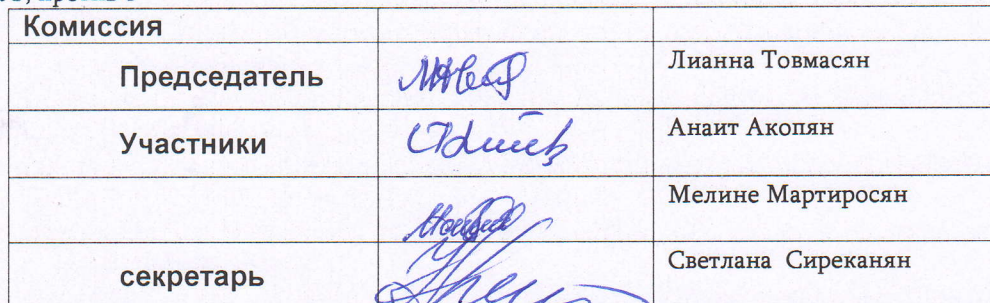 Комиссия
Председатель Лианна Товмасян
Участники Анаит Акопян
Мелине Мартиросян
секретарь Светлана Сиреканян